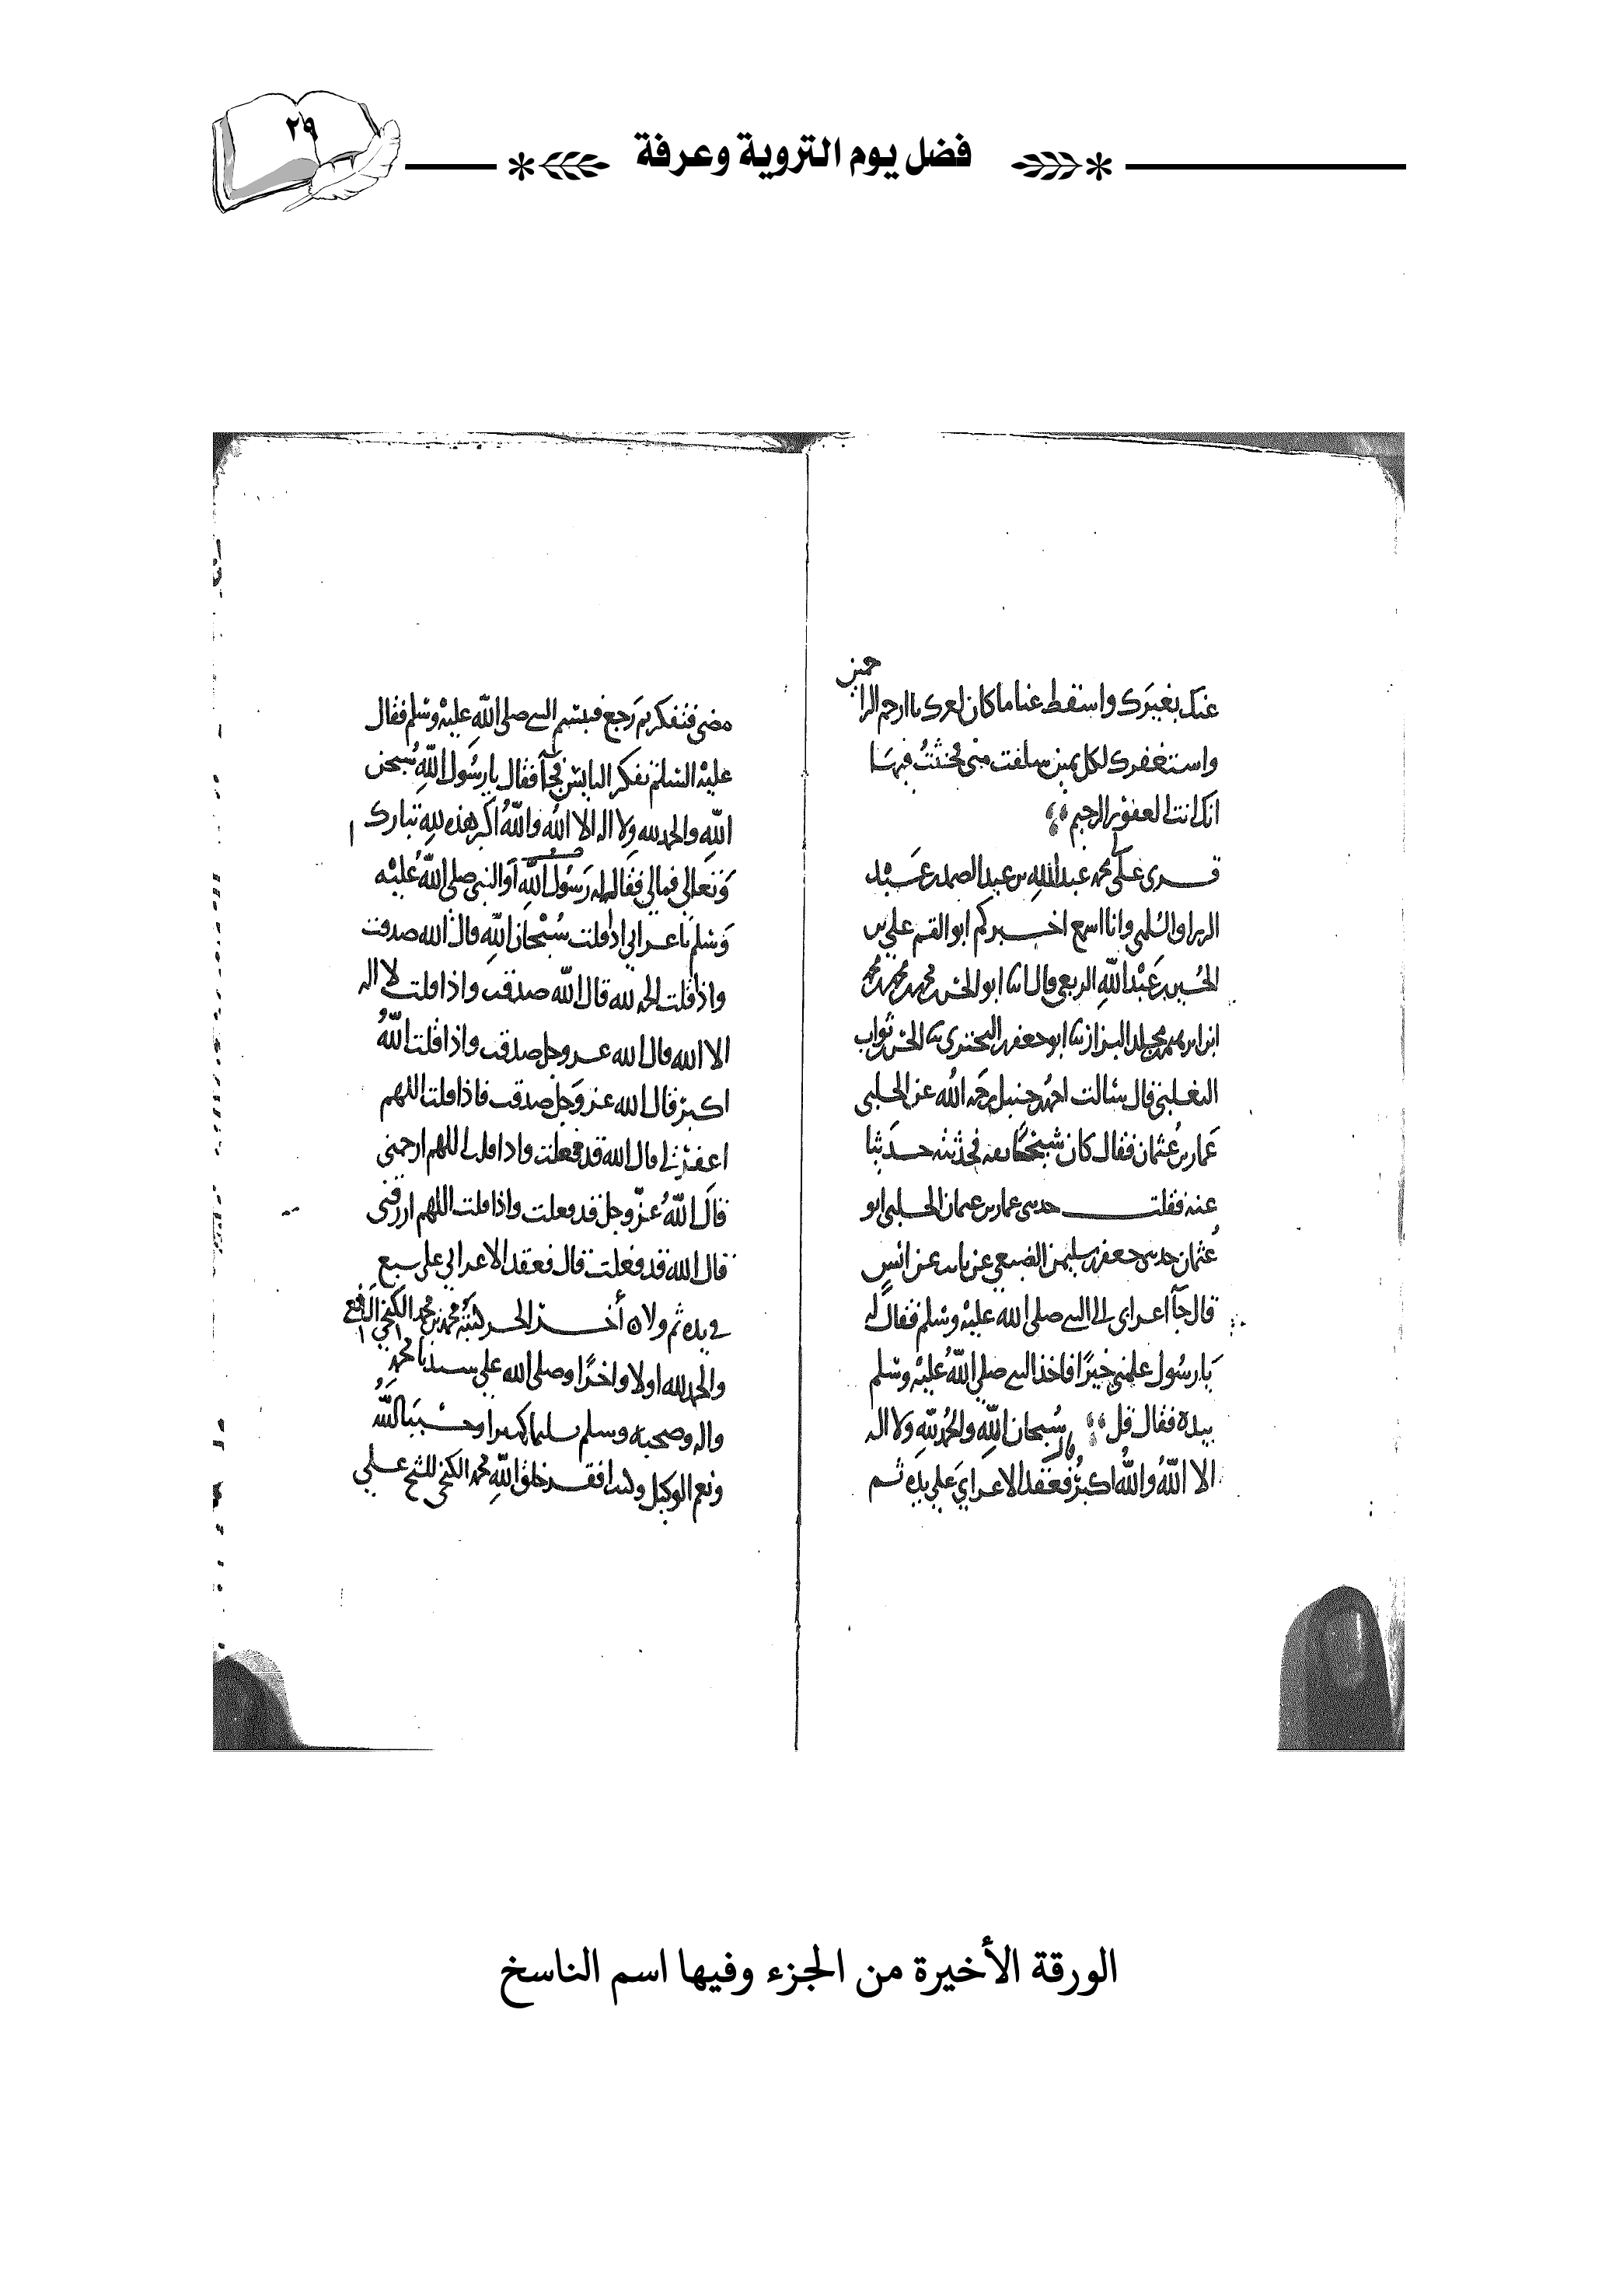 ٢٩
فضل يوم التروية وعرفة
عنك بغيرك واسقط عنا ما كان لعرك يا ارحم الراحمين
واستغفرك لكل يمين سلفت مني فحنثت فيها
انك انت الغفور الرحيم
قرى على محمد عبد الله بن عبد الصمد بن عبد
وانا اسمع اخبركم ابو القسم علي بن
الحسين بن عبد الله الربعي قال ابو الحسن محمد بن محمد بن محمد
ابن ابرهيم بن مخلد البزاز ابو جعفر البختري الحسن بن ثواب
التغلبي قال سالت احمد بن حنبل رحمه الله عن الحلبي
عمار بن عثمان فقال كان شيخا فحدثته حديثا
عنه فقلت حدثني عمار بن عثمان الحلبي ابو
عثمان حدثني جعفر بن سليمن الضبعي عن ثابت عن انس
قال جآ اعرابي الى النبي صلى الله عليه وسلم فقال له
يا رسول علمني خيرًا فاخذ النبي صلى الله عليه وسلم
بيده فقال قل سبحان الله والحمد لله ولا اله
الا الله والله اكبر قال فعقد الاعرابي على يده ثم
مضى فتفكر ثم رجع فتبسم النبي صلى الله عليه وسلم فقال
عليه السلم تفكر البايس فجآ فقال يا رسول الله سبحن
الله والحمد لله ولا اله الا الله والله اكبر هذه لله تبارك
وتعالى فمالي فقال له رسول الله او النبي صلى الله عليه
وسلم يا عرابي اذا قلت سُبْحان الله قال الله صدقت
واذا قلت الحمد لله قال الله صدقت واذا قلت لا اله
الا الله قال الله عز وجل صدقت واذا قلت اللهُ
اكبر قال الله عز وجل صدقت فاذا قلت اللهم
اغفر لي قال الله قد فعلت واذا قلت اللهم ارحمني
قال اللهُ عزّ وجل قد فعلت واذا قلت اللهم ارزقني
قال الله قد فعلت قال فعقد الاعرابي على سبع
في يده ثم ولا أخر الجزء كتبه محمد بن محمد الكنجي الشافعي
والحمد لله اولا واخرًا وصلى الله على سيدنا محمد
واله وصحبه وسلم تسليما كثيرا وحسبنا الله
ونعم الوكيل افقر خلق الله محمد الكنجي للشيخ علي
الورقة الأخيرة من الجزء وفيها اسم الناسخ